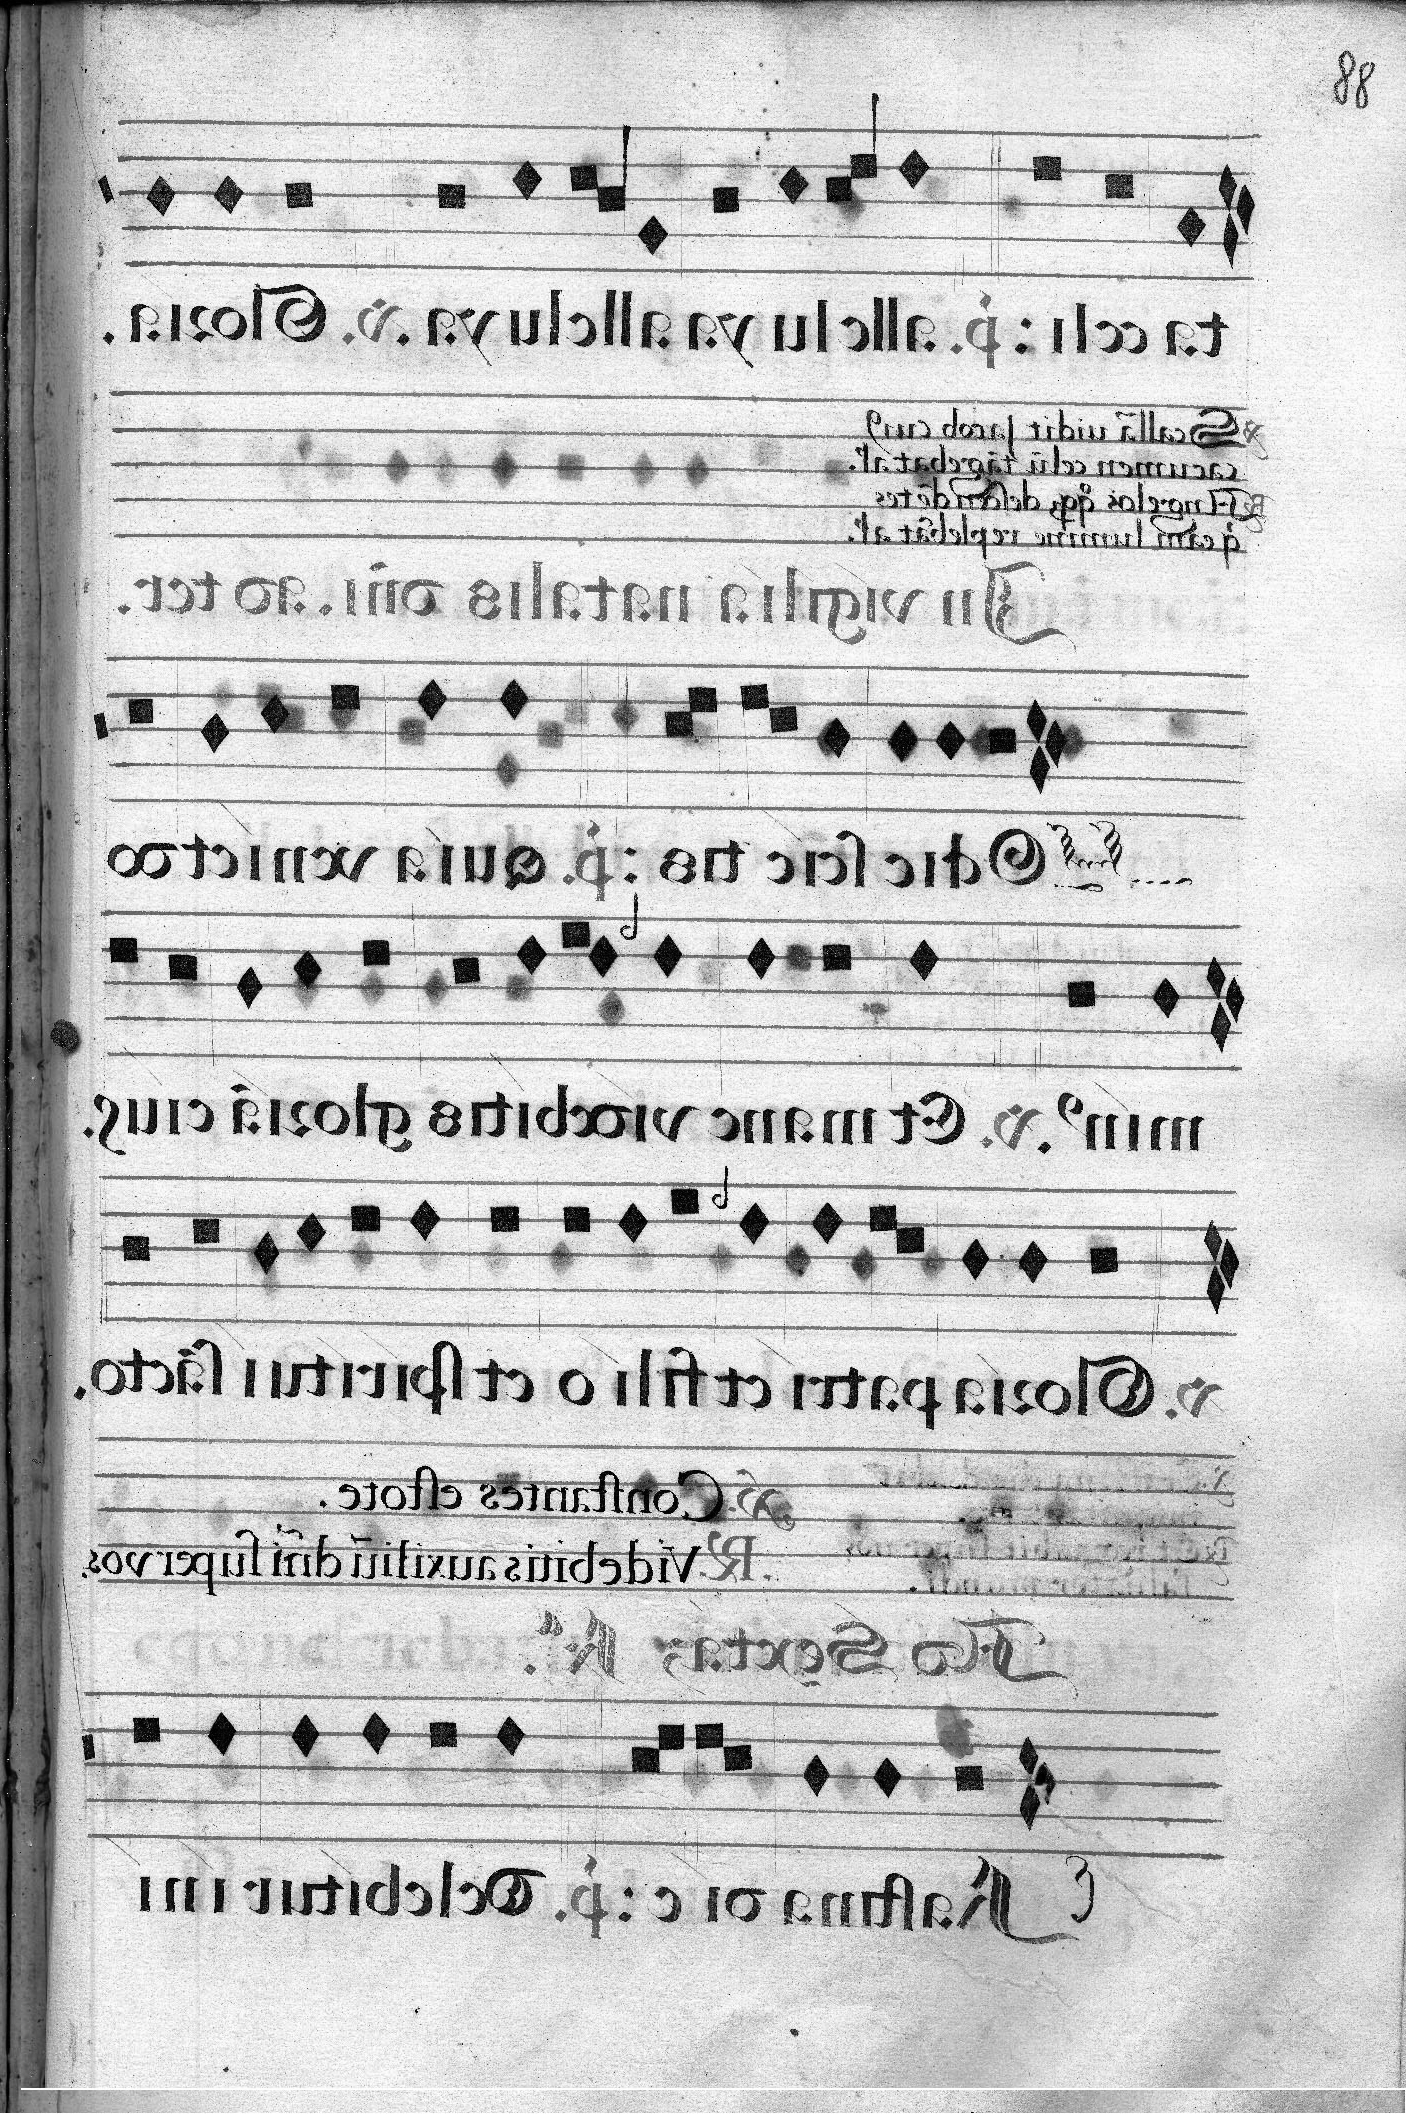 88
ta celi : p̄. alleluya alleluya. v̄. Gloria.
v̄ Scallā uidit Jacob cuiꝰ
cacumen celū tāgebat al'.
R̄ Angelos
q̄ eam lumine replebāt al'.
In vigilia natalis dn̄i. ad ter.
Odie ſcie tis : p̄. quia veniet do
minꝰ. v̄. Et mane videbitis gloriā eius.
v̄. Gloria patri et filio et ſpiritui ſācto.
v̄. Conſtantes eſtote.
R̄. Videbitis auxiliū dn̄i ſuper vos.
Ad Sextaꝫ R̄.
Craſtina die : p̄. Delebitur ini